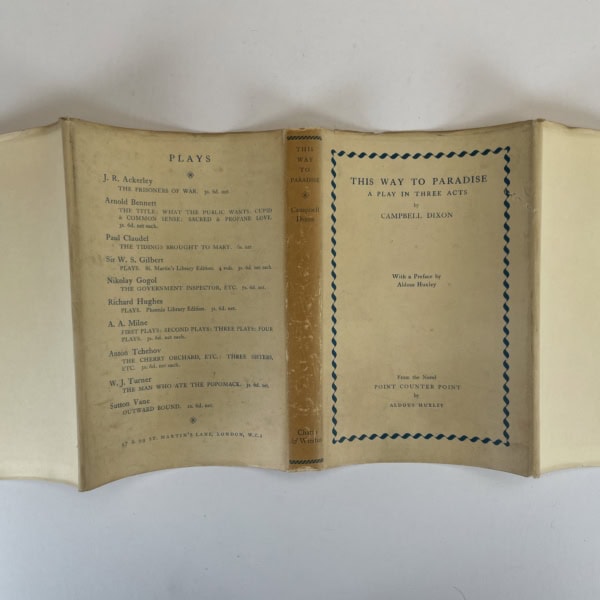 PLAYS
J. R. Ackerley
THE PRISONERS OF WAR. 3s. 6d. net
Arnold Bennett
THE TITLE; WHAT THE PUBLIC WANTS; CUPID
& COMMON SENSE; SACRED & PROFANE LOVE.
3s. 6d. net each.
Paul Claudel
THE TIDINGS BROUGHT TO MARY. net
Sir W. S. Gilbert
PLAYS. St. Martin's Library Edition. 4 vols. 3s. 6d. net each.
Nikolay Gogol
THE GOVERNMENT INSPECTOR, ETC. 7s. 6d. net.
Richard Hughes
PLAYS. Phoenix Library Edition. 3s. 6d. net.
A. A. Milne
FIRST PLAYS; SECOND PLAYS; THREE PLAYS; FOUR
PLAYS. 7s. 6d. net each.
Anton Tchehov
THE CHERRY ORCHARD, ETC. THREE SISTERS,
ETC. 7s. 6d. net each.
W. J. Turner
THE MAN WHO ATE THE POPOMACK. 3s. 6d. net.
Sutton Vane
OUTWARD BOUND. 6d. net.
97 & 99 ST. MARTIN'S LANE, LONDON, W.C.2
THIS
WAY
TO
PARADISE
Campbell
Dixon
Chatto
& Windus
THIS WAY TO PARADISE
A PLAY IN THREE ACTS
by
CAMPBELL DIXON
With a Preface by
Aldous Huxley
From the Novel
POINT COUNTER POINT
by
ALDOUS HUXLEY